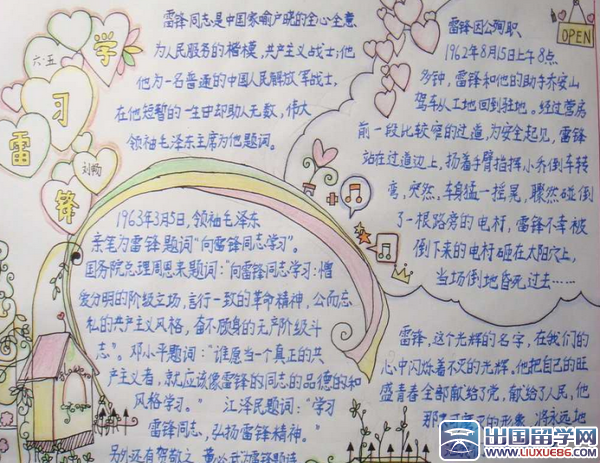 学习雷锋
六·五
刘畅
雷锋同志是中国家喻户晓的全心全意
为人民服务的楷模，共产主义战士；他
作为一名普通的中国人民解放军战士，
在他短暂的一生中却助人无数，伟大
领袖毛泽东主席为他题词。
1963年3月5日，领袖毛泽东
亲笔为雷锋题词"向雷锋同志学习"。
国务院总理周恩来题词："向雷锋同志学习：憎
爱分明的阶级立场，言行一致的革命精神，公而忘
私的共产主义风格，奋不顾身的无产阶级斗
志"。邓小平题词："谁愿当一个真正的共
产主义者，就应该像雷锋的同志的品德的和
风格学习。" 江泽民题词："学习
雷锋同志，弘扬雷锋精神。"
另外还有
OPEN
雷锋因公殉职
1962年8月15日上午8点
多钟，雷锋和他的助手乔安山
驾车从工地回到驻地。经过营房
前一段比较窄的过道，为安全起见，雷锋
站在过道边上，扬着手臂指挥小乔倒车转
弯，突然，车身猛一摇晃，骤然碰倒
了一根路旁的电村，雷锋不幸被
倒下来的电村砸在太阳穴上，
当场倒地昏死过去……
雷锋，这个光辉的名字，在我们的
心中闪烁着不灭的光辉。他把自己的旺
盛青春全部献给了党，献给了人民，他
的形象，将永远地
出国留学网
www.liuxue86.com